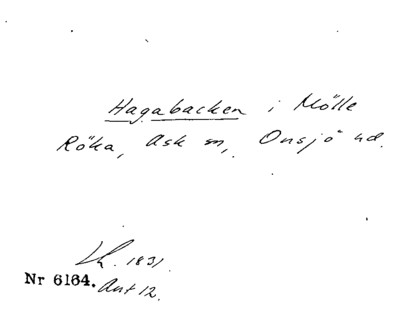 Hagabacken i Mölle
Röka, Ask sn, Onsjö hd.
Lk. 1831.
Nr 6164. Akt 12.